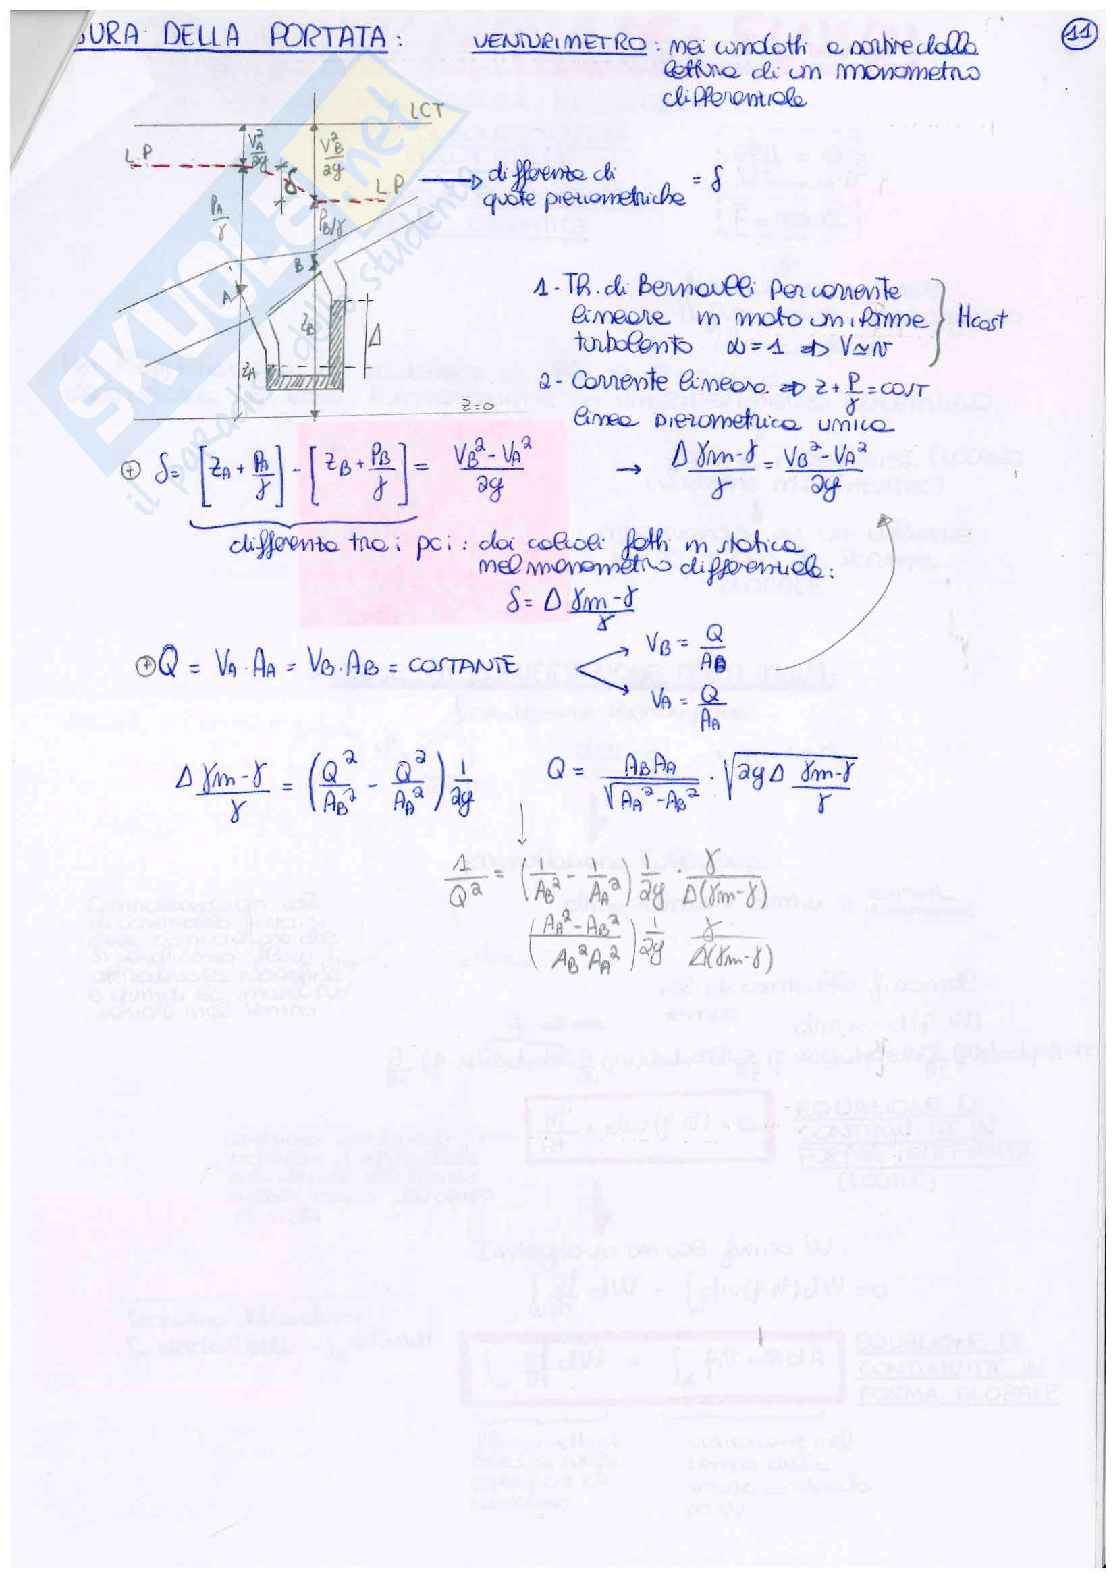 SURA DELLA PORTATA :
VENTURIMETRO : nei condotti a partire dalla
lettura di un manometro
differenziale
11
LCT
V_A²/2g
V_B²/2g
L.P
δ
L P
P_A/γ
P_B/γ
B
A
Z_B
Z_A
Δ
Z=0
differenza di
quote piezometriche = δ
1 - Th. di Bernoulli per corrente
lineare in moto uniforme
turbolento α=1 ⇒ V≃v
} Hcost
2 - Corrente lineare ⇒ z + P/γ = COST
linea piezometrica unica
⊕ δ = [Z_A + P_A/γ] - [Z_B + P_B/γ] = (V_B² - V_A²)/2g → Δ (γm-γ)/γ = (V_B² - V_A²)/2g
differenza tra i pci : dai calcoli fatti in statica
nel manometro differenziale :
δ = Δ (γm-γ)/γ
⊕ Q = V_A · A_A = V_B · A_B = COSTANTE
V_B = Q/A_B
V_A = Q/A_A
Δ (γm-γ)/γ = (Q²/A_B² - Q²/A_A²) 1/2g
Q = A_B A_A/√(A_A² - A_B²) · √(2gΔ (γm-γ)/γ)
1/Q² = (1/A_B² - 1/A_A²) 1/2g · γ/Δ(γm-γ)
(A_A² - A_B²/A_B² A_A²) 1/2g γ/Δ(γm-γ)
SKUOLA.net
il paradiso dello studente